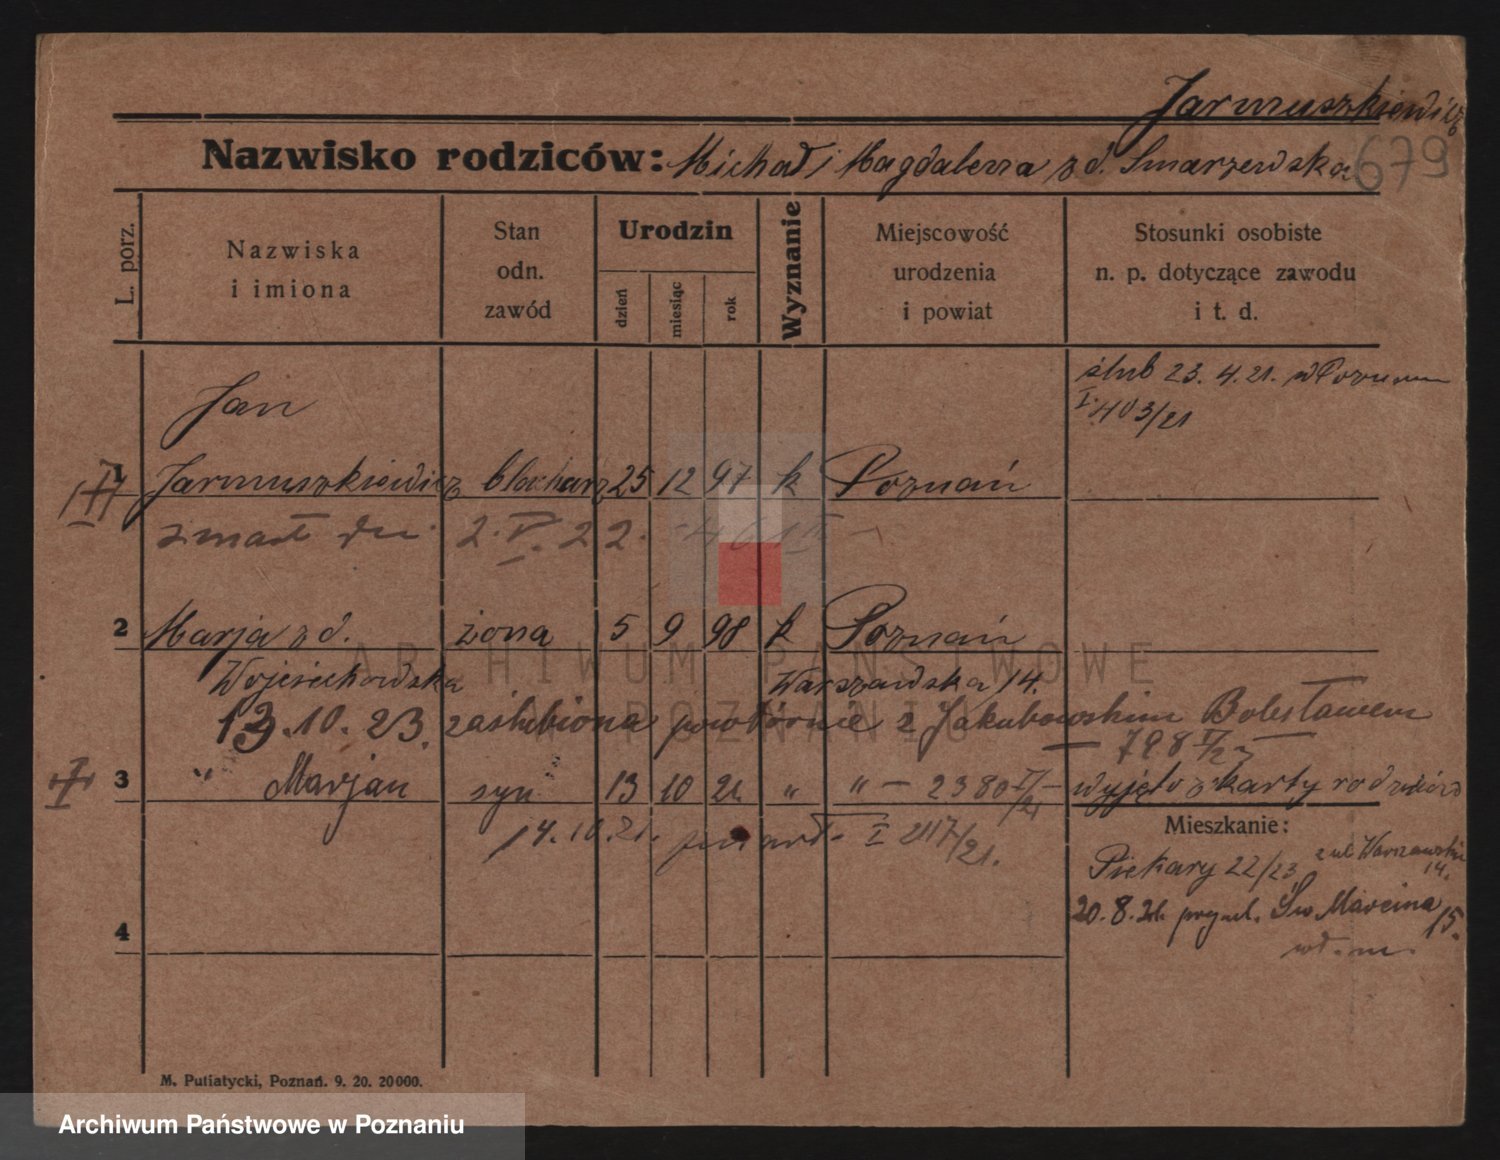 Jarmuszkiewicz
Nazwisko rodziców: Michał i Magdalena z d. Smarzewska 679
L. porz.
Nazwiska
i imiona
Stan
odn.
zawód
Urodzin
dzień
miesiąc
rok
Wyznanie
Miejscowość
urodzenia
i powiat
Stosunki osobiste
n. p. dotyczące zawodu
i t. d.
ślub 23. 4. 21. w Poznaniu
I. 403/21
Jan
1 Jarmuszkiewicz blacharz 25 12 97 k Poznań
zmarł dn. 2. V. 22.
2 Marja z d. żona 5 9 98 k Poznań
Wojciechowska Warszawska 14.
13. 10. 23. zaślubiona powtórnie z Jakubowskim Bolesławem
3 " Marjan syn 13 10 21 " " – 2380
wyjęto z karty rodziców
14. 10. 21. I 2117/21.
Mieszkanie:
Piekary 22/23 z ul Warszawskiej
14.
20. 8. 21. Św Marcina 15.
4
M. Putiatycki, Poznań. 9. 20. 20000.
ARCHIWUM PAŃSTWOWE
W POZNANIU
Archiwum Państwowe w Poznaniu